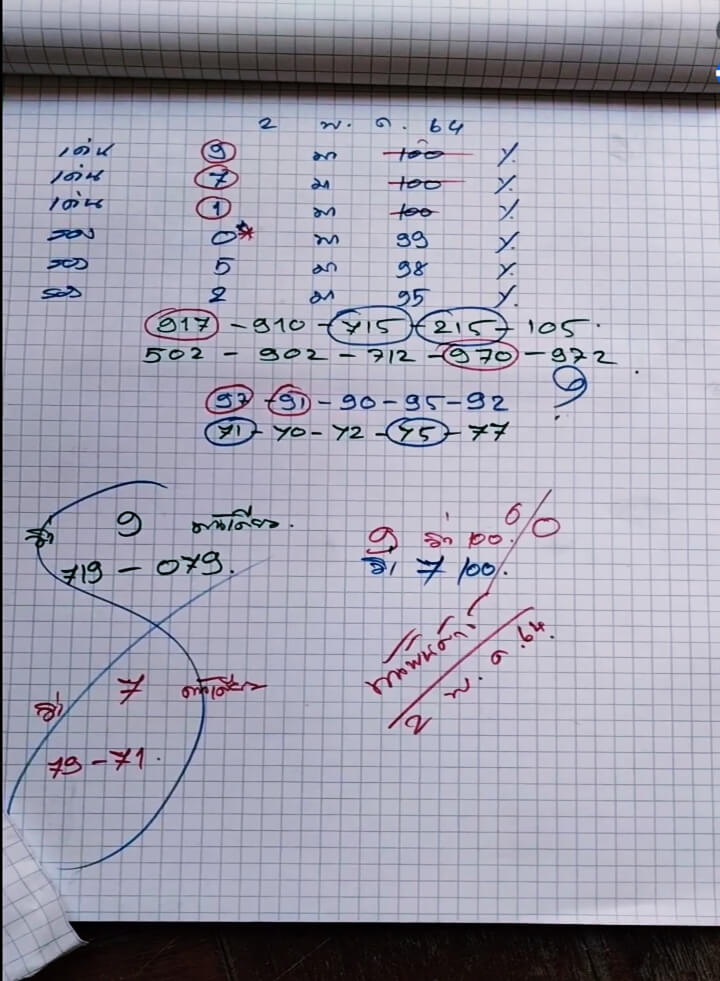 2 พ. ค. 64
เด่น 9 มา 100 %
เด่น 7 มา 100 %
เด่น 1 มา 100 %
รอง 0* มา 99 %
รอง 5 มา 98 %
รอง 2 มา 95 %
917 - 910 - 715 - 215 - 105
502 - 902 - 712 - 970 - 972
97 - 91 - 90 - 95 - 92
71 - 70 - 72 - 75 - 77
9 ตัวเดียว.
719 - 079.
7 ตัวเดียว
79 - 71.
9 100. %
7 100.
2 พ. ค. 64.